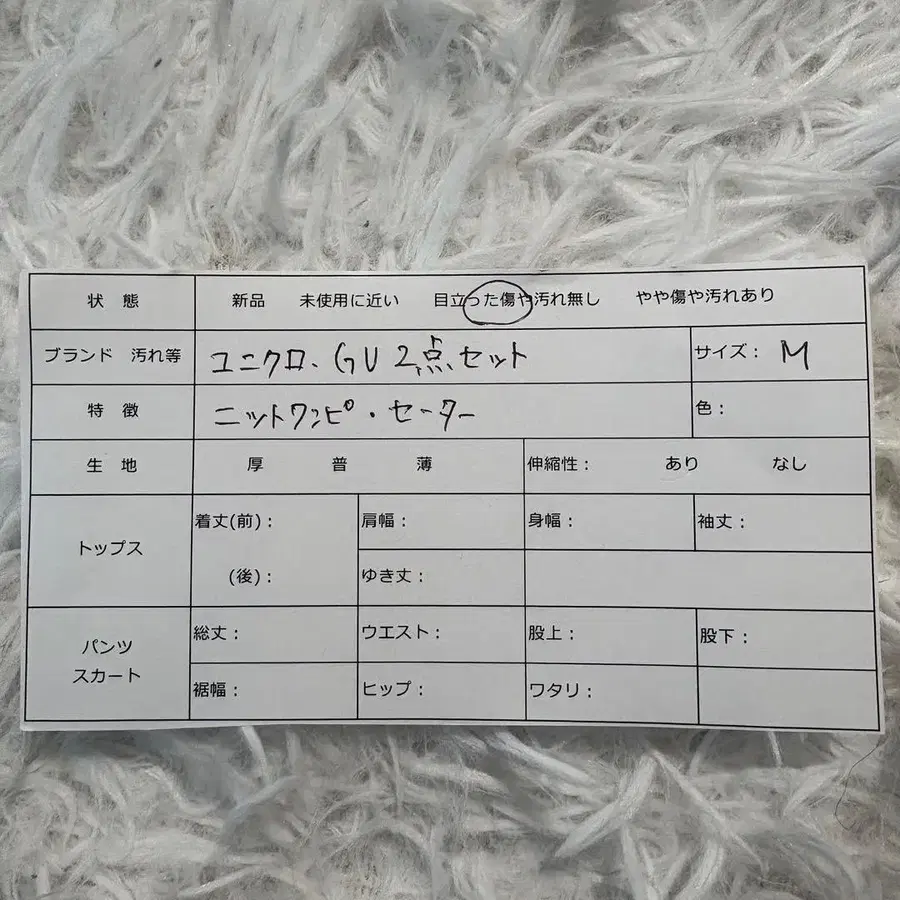 状 態 新品 未使用に近い 目立った傷や汚れ無し やや傷や汚れあり
ブランド 汚れ等 ユニクロ、GU 2点セット サイズ： M
特 徴 ニットワンピ・セーター 色：
生 地 厚 普 薄 伸縮性： あり なし
トップス 着丈(前)： 肩幅： 身幅： 袖丈：
(後)： ゆき丈：
パンツ スカート 総丈： ウエスト： 股上： 股下：
裾幅： ヒップ： ワタリ：